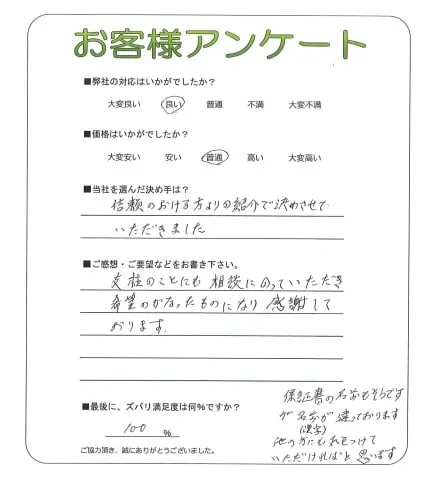 お客様アンケート
■弊社の対応はいかがでしたか？
大変良い 良い 普通 不満 大変不満
■価格はいかがでしたか？
大変安い 安い 普通 高い 大変高い
■当社を選んだ決め手は？
信頼のおける方よりの紹介で決めさせて
いただきました
■ご感想・ご要望などをお書き下さい。
支柱のことにも相談にのっていただき
希望のかなったものになり感謝して
おります.
■最後に、ズバリ満足度は何％ですか？
100 ％
ご協力頂き、誠にありがとうございました。
保証書の名前もそうです
が名前が違っております
(漢字)
他の方にも気をつけて
いただければと思います